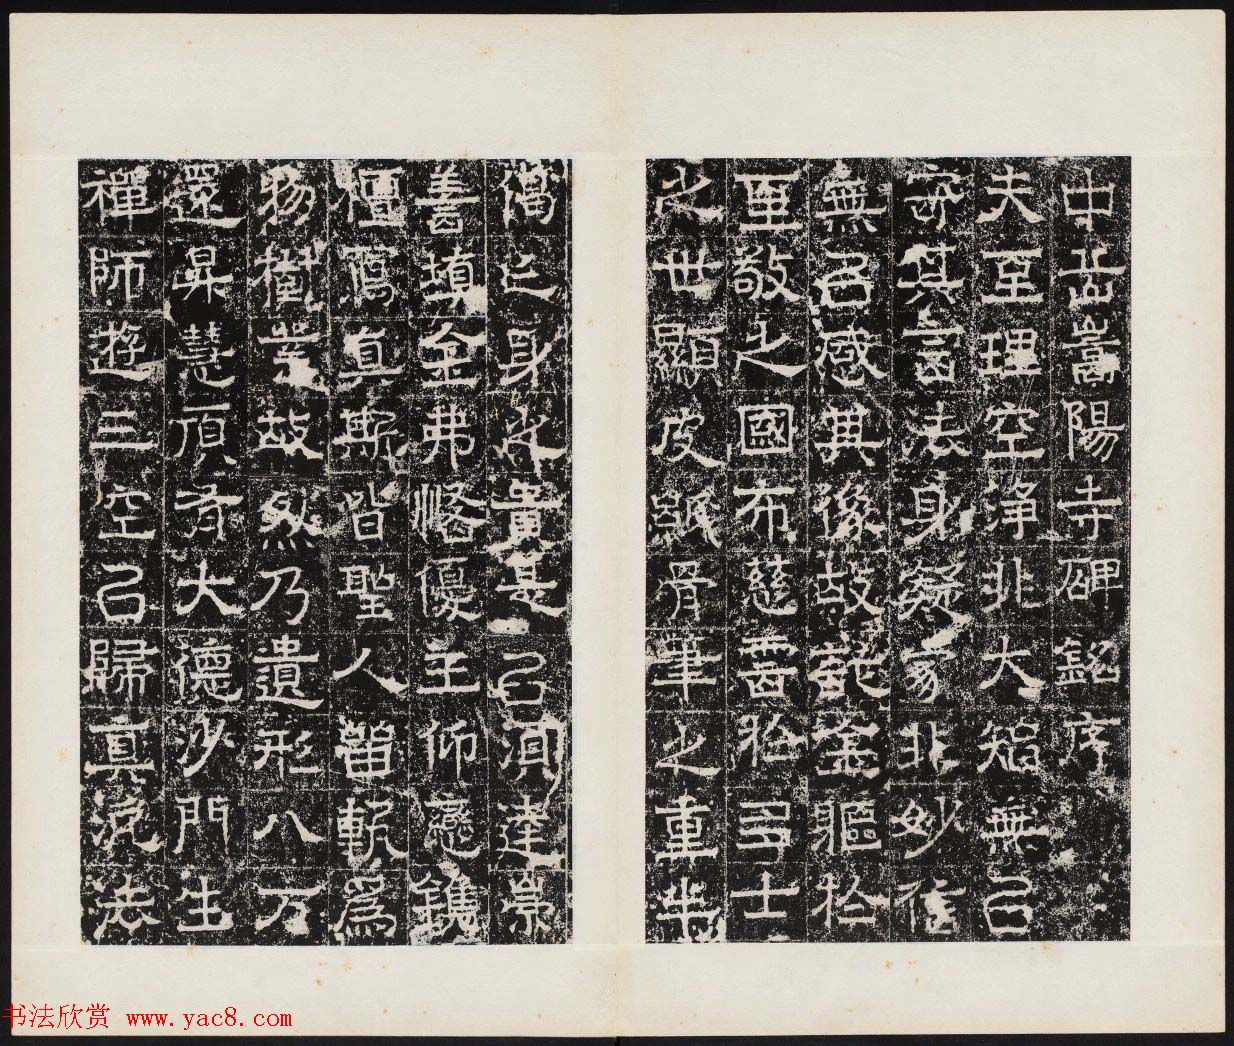 中岳嵩陽寺碑銘序
夫至理空淨非大智無以
寄其言法身凝寂非妙信
無以感其像故託金軀於
至敬之國布慈雲於習士
之世顯皮紙骨筆之重半
偈亡身之貴甚以洞達崇
善填金弗悋優王仰戀鐫
檀寫真斯皆聖人留軌為
物樹業故然乃遺形八万
還昇慧頂有大德沙門生
禪師遊三空以歸真泛法
书法欣赏 www.yac8.com